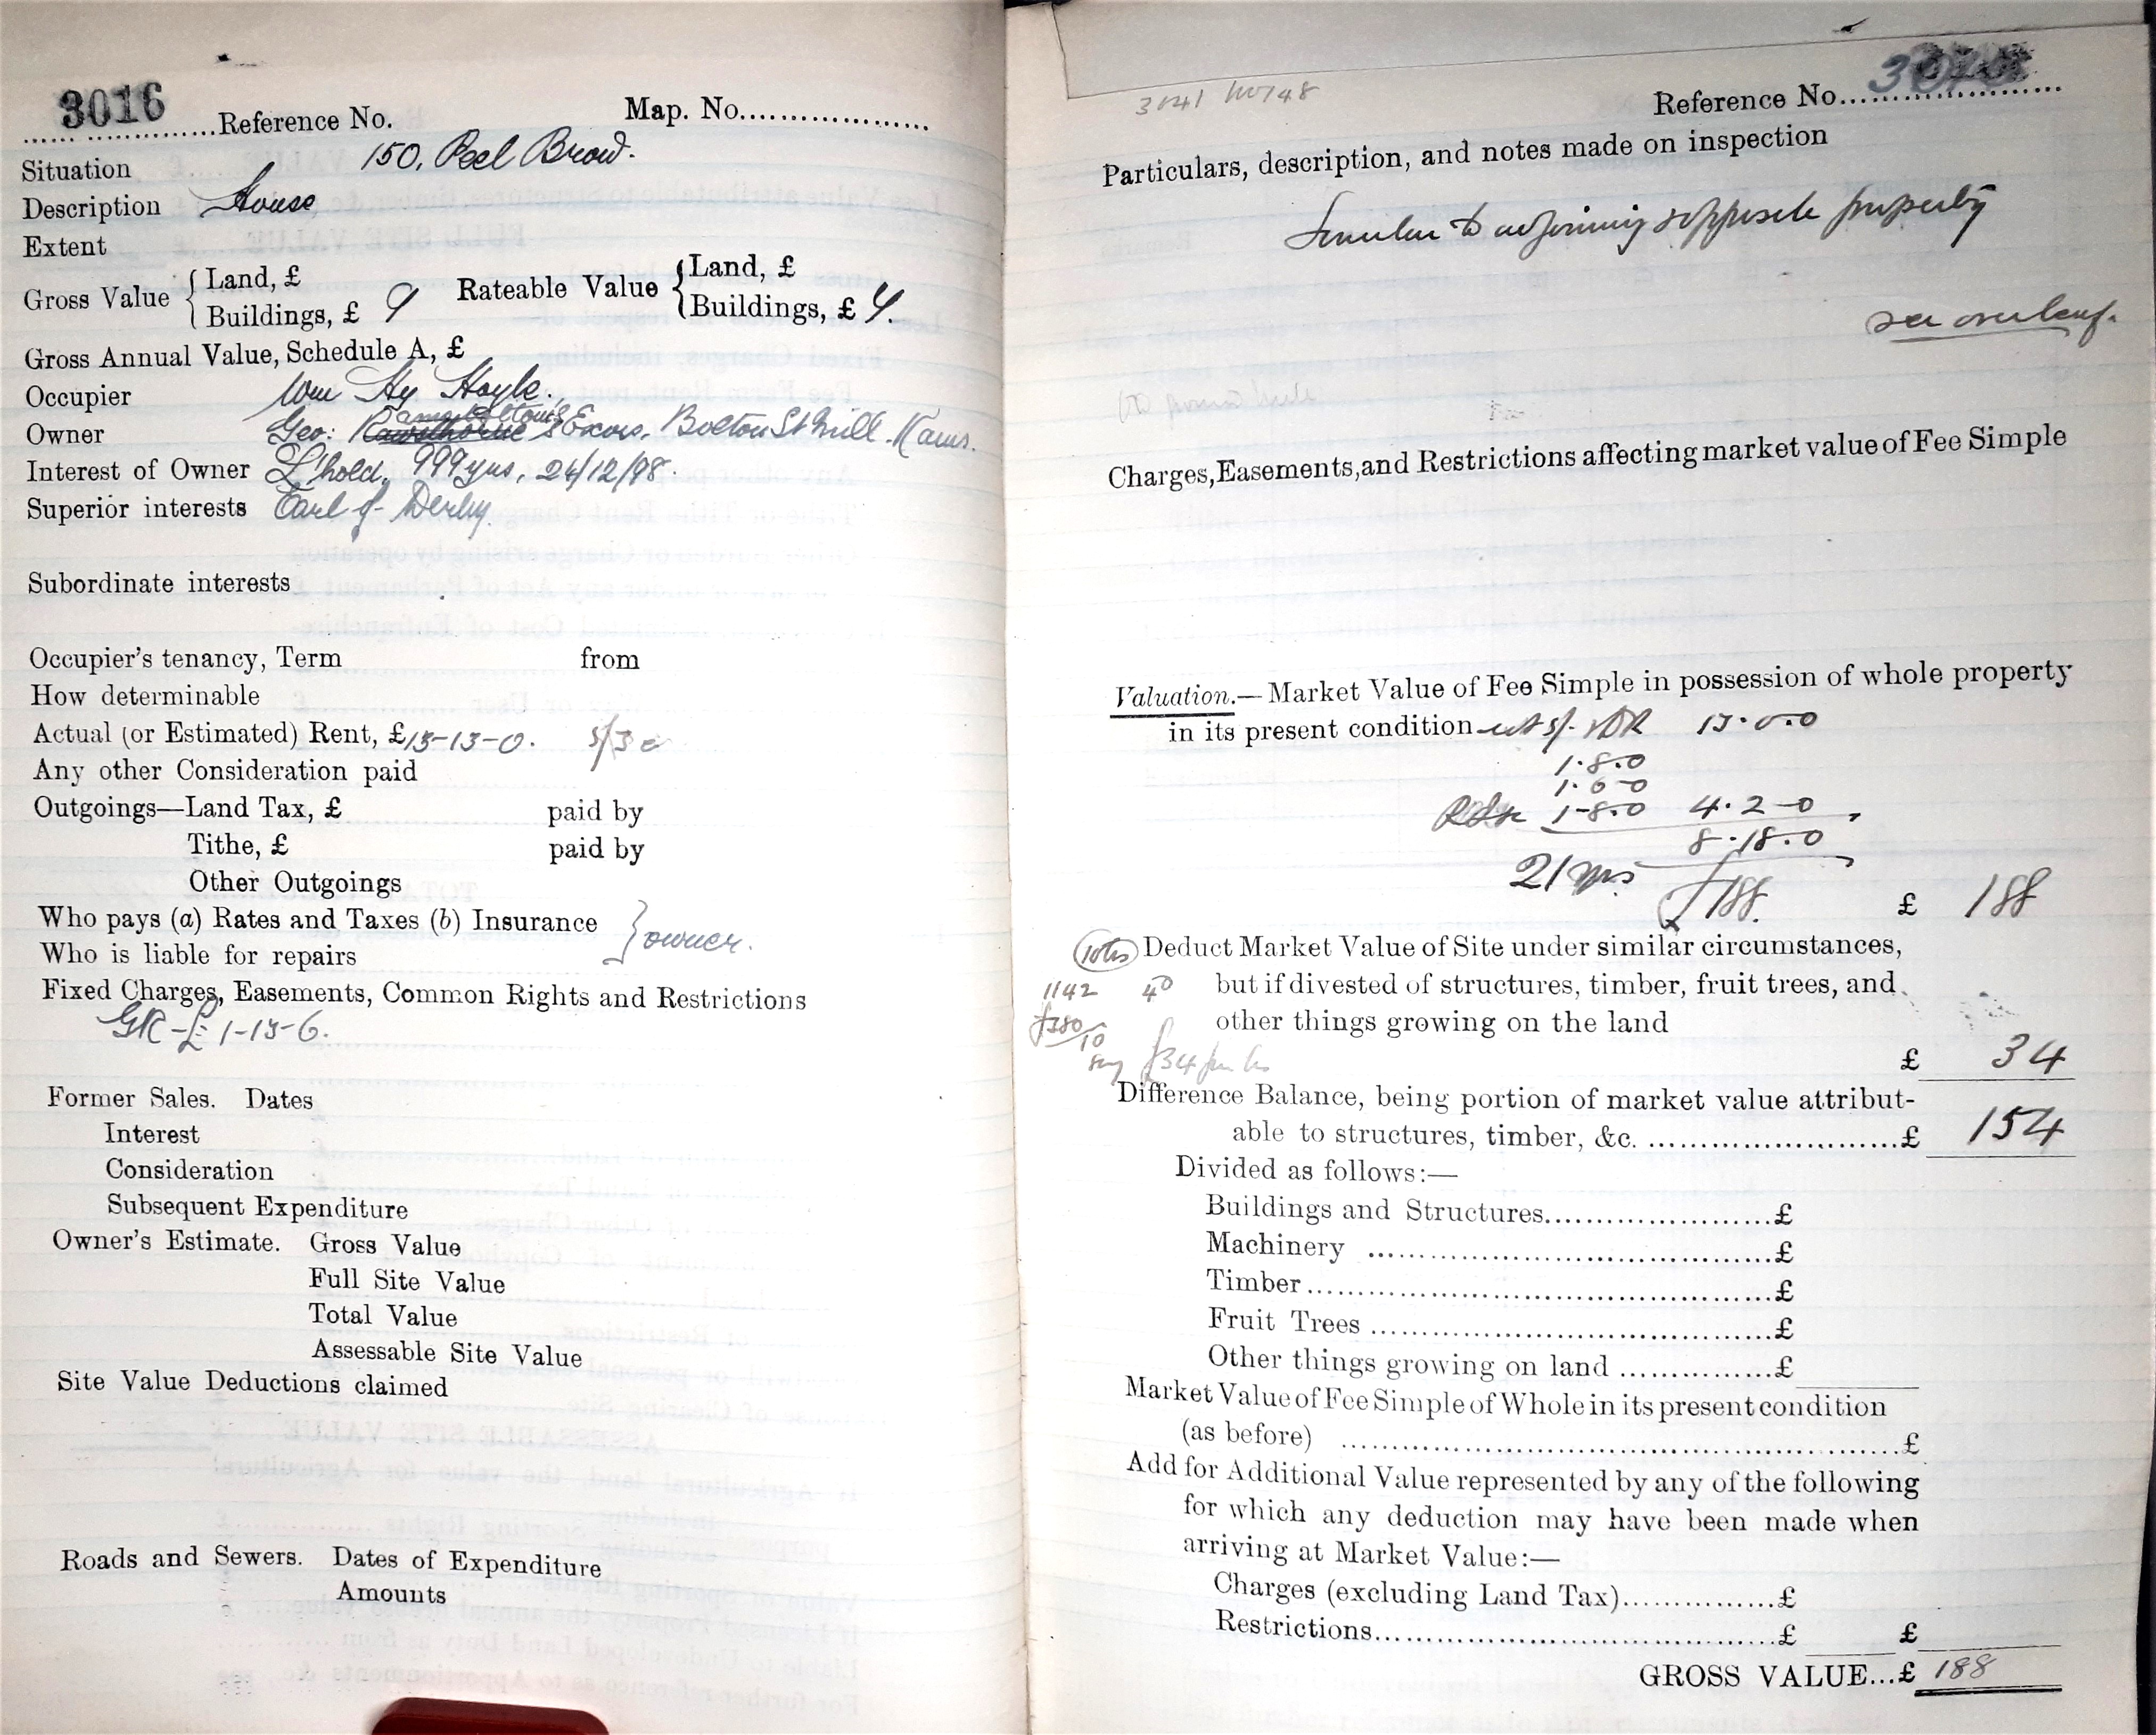 3016 Reference No. Map. No.
Situation 150, Peel Brow.
Description House
Extent
Gross Value { Land, £ Rateable Value { Land, £
Buildings, £ 9 Buildings, £
Gross Annual Value, Schedule A, £
Occupier Wm Hy Hoyle.
Owner Geo: Exors. Bolton St Mill. Rams.
Interest of Owner L'hold, 999 yrs, 24/12/98.
Superior interests Earl of Derby.
Subordinate interests
Occupier's tenancy, Term from
How determinable
Actual (or Estimated) Rent, £13-13-0. 5/3
Any other Consideration paid
Outgoings—Land Tax, £ paid by
Tithe, £ paid by
Other Outgoings
Who pays (a) Rates and Taxes (b) Insurance } owner.
Who is liable for repairs
Fixed Charges, Easements, Common Rights and Restrictions
GR - £1-13-6.
Former Sales. Dates
Interest
Consideration
Subsequent Expenditure
Owner's Estimate. Gross Value
Full Site Value
Total Value
Assessable Site Value
Site Value Deductions claimed
Roads and Sewers. Dates of Expenditure
Amounts
3041
Reference No.
Particulars, description, and notes made on inspection
Similar to adjoining & opposite property
see overleaf.
Charges, Easements, and Restrictions affecting market value of Fee Simple
Valuation.— Market Value of Fee Simple in possession of whole property
in its present condition 13.0.0
1.8.0
1.6-0
1-8.0 4.2-0
8.18.0
21 yrs £188. £ 188
Deduct Market Value of Site under similar circumstances,
1142 40 but if divested of structures, timber, fruit trees, and
other things growing on the land
10
say £34 £ 34
Difference Balance, being portion of market value attribut-
able to structures, timber, &c. £ 154
Divided as follows:—
Buildings and Structures £
Machinery £
Timber £
Fruit Trees £
Other things growing on land £
Market Value of Fee Simple of Whole in its present condition
(as before) £
Add for Additional Value represented by any of the following
for which any deduction may have been made when
arriving at Market Value:—
Charges (excluding Land Tax) £
Restrictions £ £
GROSS VALUE...£ 188